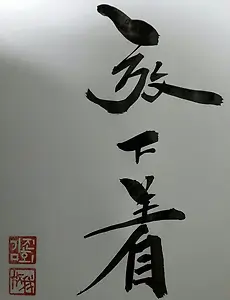 放下着